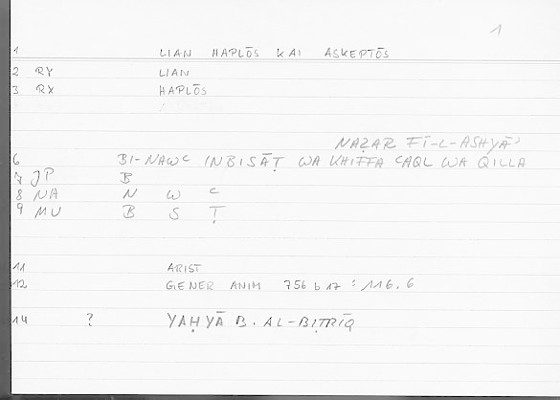 1
1 LIAN HAPLŌS KAI ASKEPTŌS
2 RY LIAN
3 RX HAPLŌS
NAẒAR FĪ-L-ASHYĀʾ
6 BI-NAWC INBISĀṬ WA KHIFFA CAQL WA QILLA
7 JP B
8 NA N W C
9 MU B S Ṭ
11 ARIST
12 GENER ANIM 756 b 17 : 116.6
14 ? YAḤYĀ B. AL-BIṬRĪQ